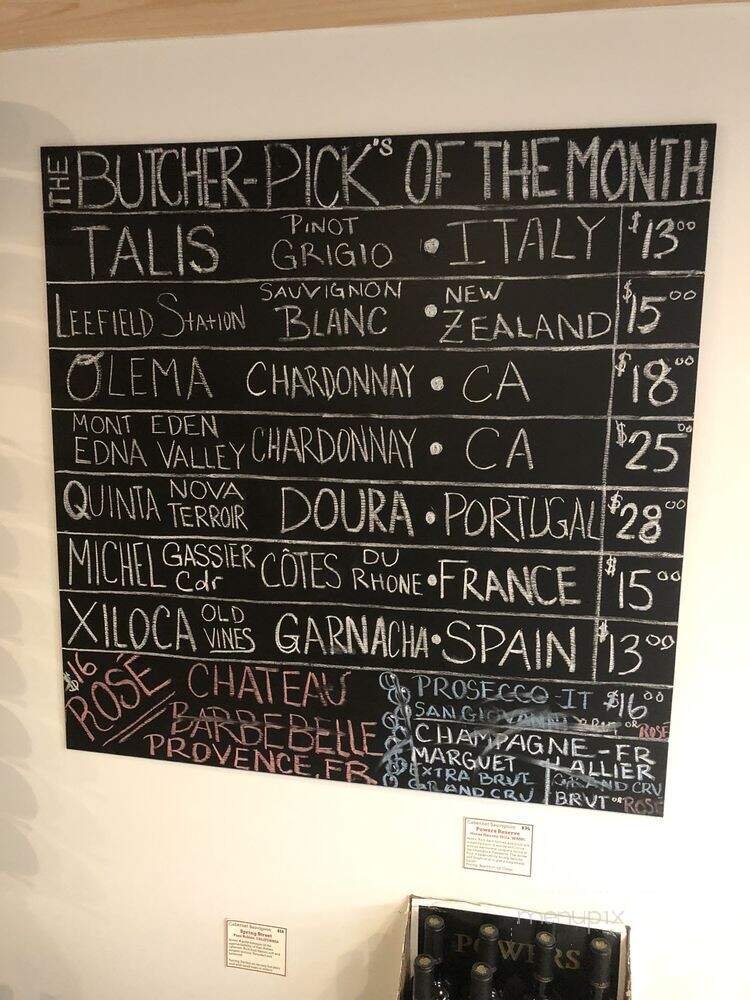 THE BUTCHER-PICK'S OF THE MONTH
TALIS PINOT GRIGIO • ITALY $13.00
LEEFIELD STATION SAUVIGNON BLANC • NEW ZEALAND $15.00
OLEMA CHARDONNAY • CA $18.00
MONT EDEN EDNA VALLEY CHARDONNAY • CA $25.00
QUINTA NOVA TERROIR DOURA • PORTUGAL $28.00
MICHEL GASSIER Cdr CÔTES DU RHONE • FRANCE $15.00
XILOCA OLD VINES GARNACHA • SPAIN $13.00
$16 ROSÉ
CHATEAU
BARBEBELLE
PROVENCE, FR
PROSECCO-IT $16.00
SAN GIOVANNI BRUT OR ROSÉ
CHAMPAGNE-FR
MARGUET LALLIER
EXTRA BRUT GRAND CRU
GRAND CRU BRUT OR ROSÉ
Cabernet Sauvignon
Powers Reserve
Cabernet Sauvignon
Spring Street
Paso Robles, CALIFORNIA
POWERS
menupix